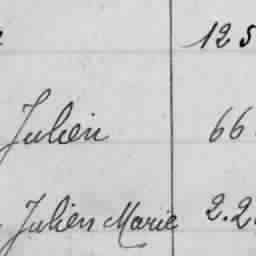 125
Julien 66
Julien Marie 2.2